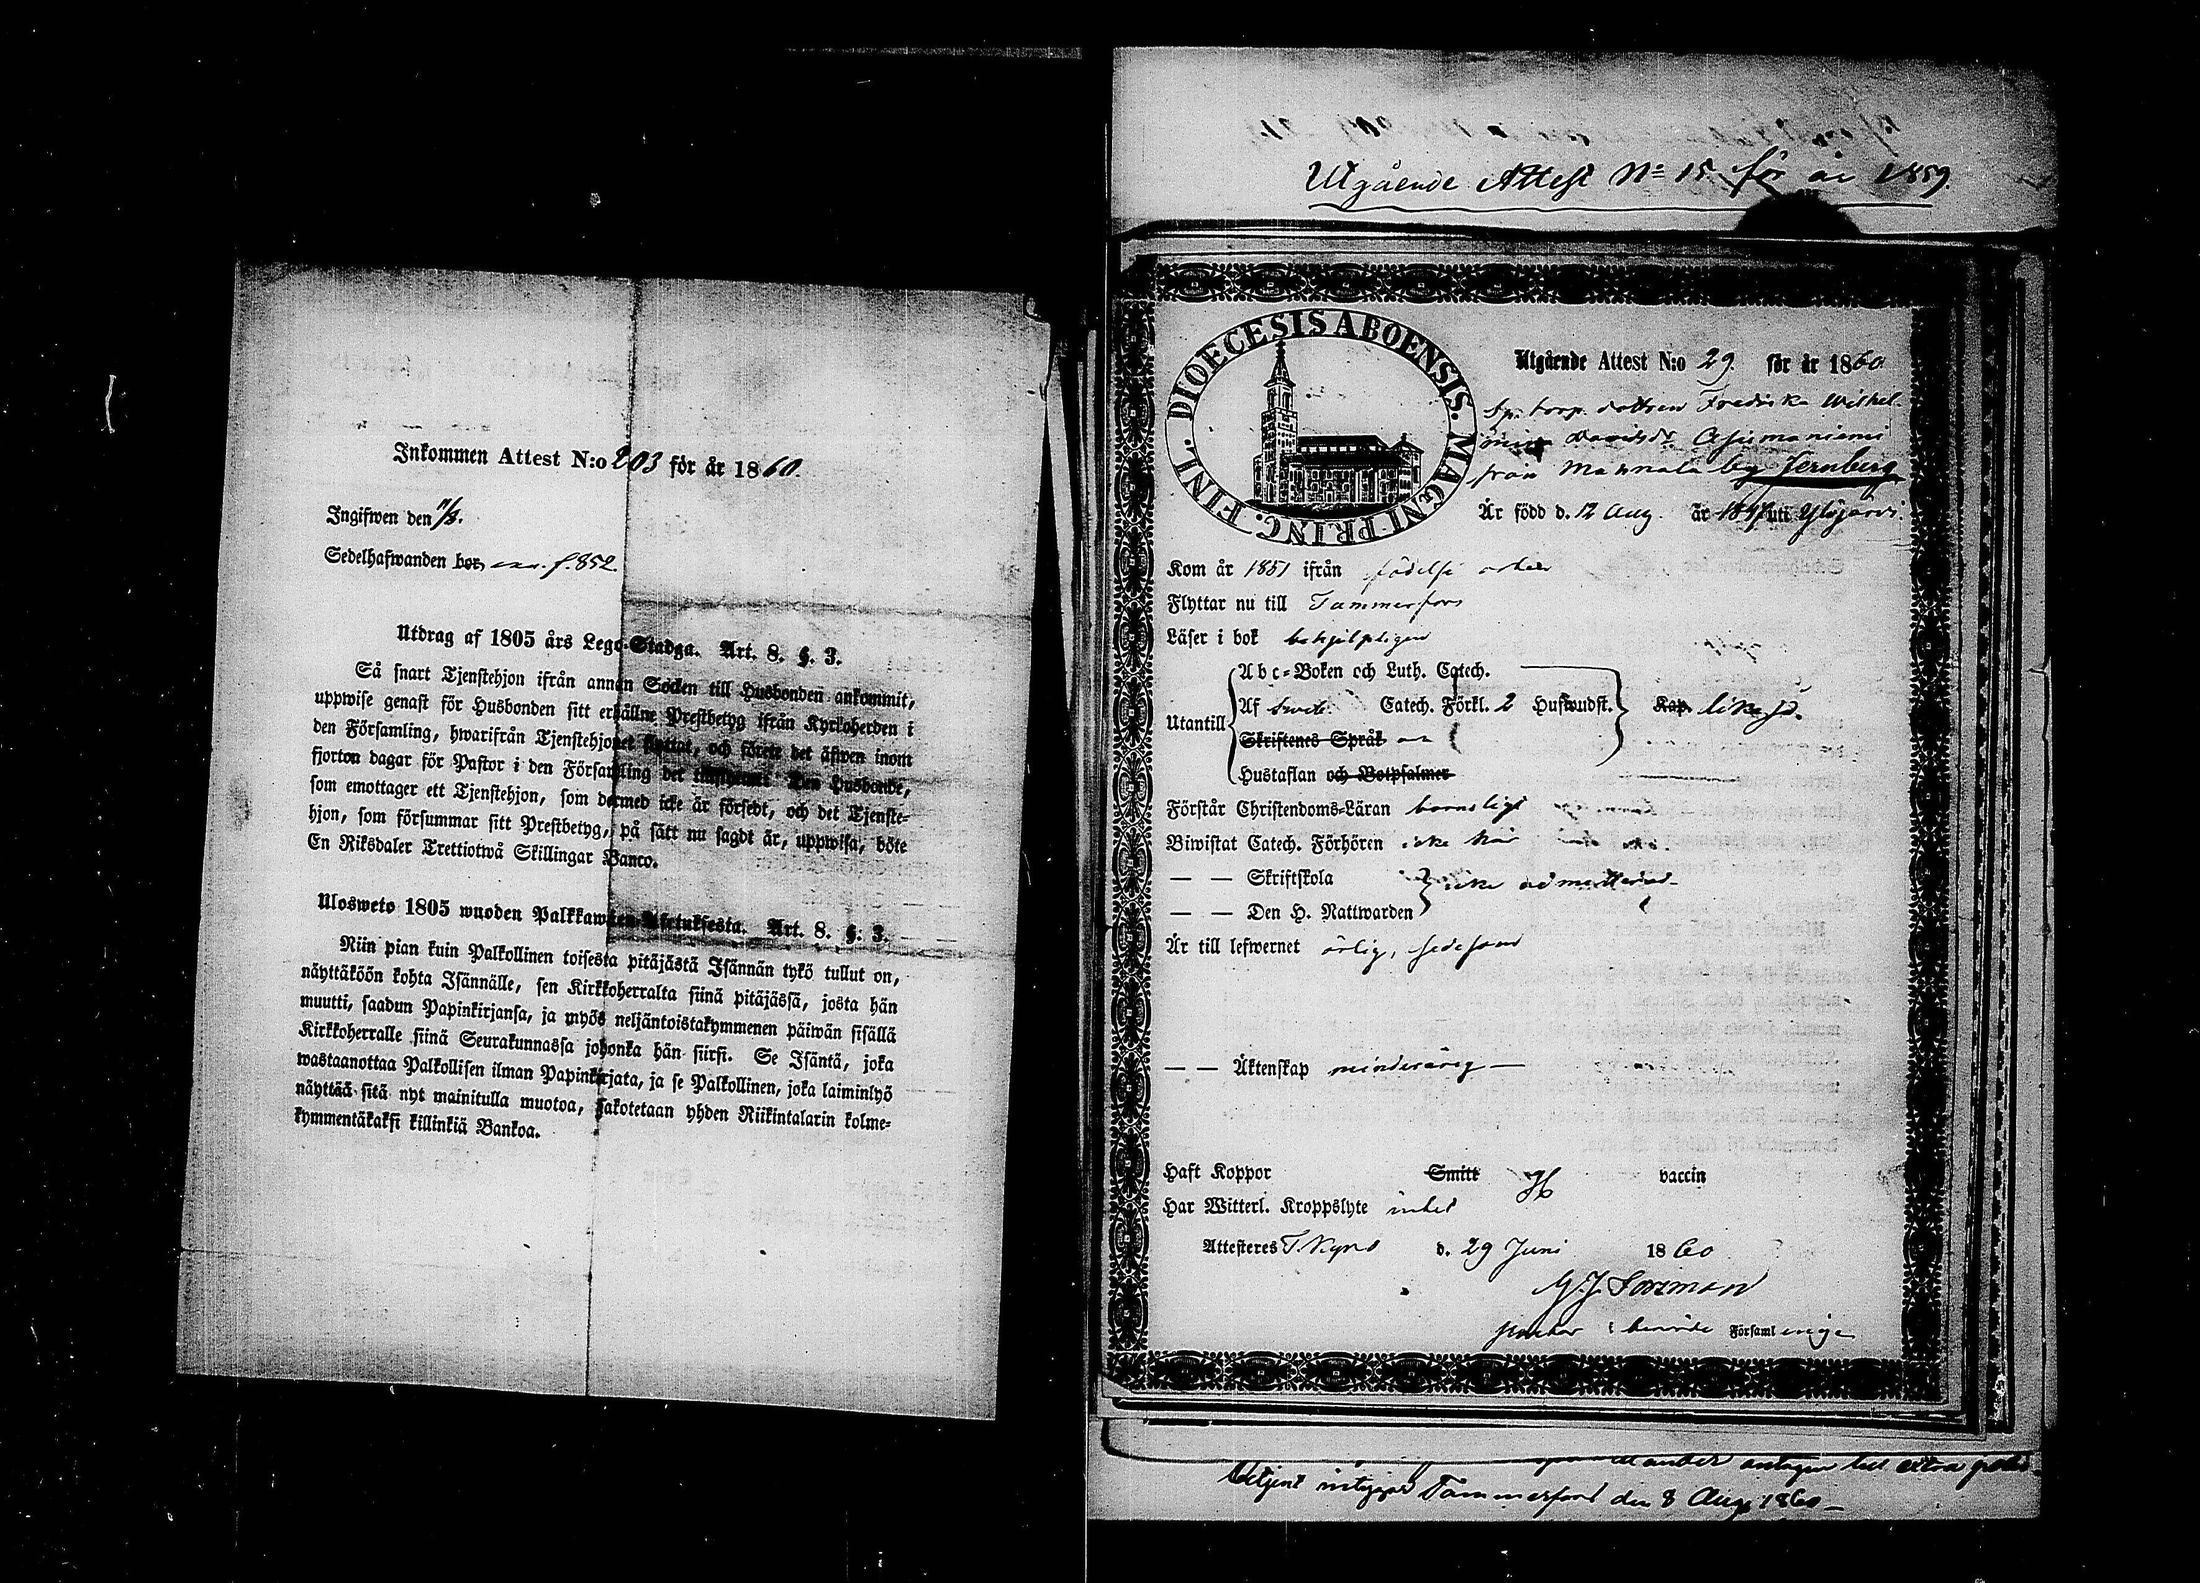 Inkommen Attest N:o 203 för år 1860.
Ingifwen den 11/8.
Sedelhafwanden bor f. 852.
Utdrag af 1805 års Lego-Stadga. Art. 8. §. 3.
Så snart Tjenstehjon ifrån annan Socken till Husbonden ankommit,
uppwise genast för Husbonden sitt erhållne Prestbetyg ifrån Kyrkoherden i
den Församling, hwarifrån Tjenstehjonet flyttat, och förete det äfwen inom
fjorton dagar för Pastor i den Församling det Den Husbonde,
som emottager ett Tjenstehjon, som dermed icke är försedt, och det Tjenste-
hjon, som försummar sitt Prestbetyg, på sätt nu sagdt är, uppwisa, böte
En Riksdaler Trettiotwå Skillingar Banco.
Ulosweto 1805 wuoden Palkkawäen-Asetuksesta. Art. 8. §. 3.
Niin pian kuin Palkollinen toisesta pitäjästä Isännän tykö tullut on,
näyttäköön kohta Isännälle, sen Kirkkoherralta siinä pitäjässä, josta hän
muutti, saadun Papinkirjansa, ja myös neljäntoistakymmenen päiwän sisällä
Kirkkoherralle siinä Seurakunnassa johonka hän siirsi. Se Isäntä, joka
wastaanottaa Palkollisen ilman Papinkirjata, ja se Palkollinen, joka laiminlyö
näyttää sitä nyt mainitulla muotoa, sakotetaan yhden Riikintalarin kolme-
kymmentäkaksi killinkiä Bankoa.
Utgående Attest No 15 för år 1859.
DIOECESIS ABOENSIS. MAGNI PRINC. FINL.
Utgående Attest N:o 29. för år 1860.
Sp. torp. dottren Fredrika Wilhel-
mina Davidsdr Asismaniemi
från Mahnala by Jernberg
Är född d. 12 Aug. år uti Ylöjärvi.
Kom år 1851 ifrån födelse orten
Flyttar nu till Tammerfors
Läser i bok behjelpligen
Utantill
Abc-Boken och Luth. Catech.
Af Catech. Förkl. 2 Huswudst. Kap. likaså.
Skriftenes Språk
Hustaflan och Botpsalmer
Förstår Christendoms-Läran barnsligt
Biwistat Catech. Förhören icke här
— — Skriftskola
icke admitterad
— — Den H. Nattwarden
Är till lefwernet ärlig, sedesam
— — Äktenskap minderårig —
Haft Koppor Smitt vaccin
Har Witterl. Kroppslyte intet
Attesteres T.Kyro d. 29 Juni 1860
G. J. Forsman
pastor i berörde Församl
antagen extra
Betjent Tammerfors den 8 Aug. 1860 —